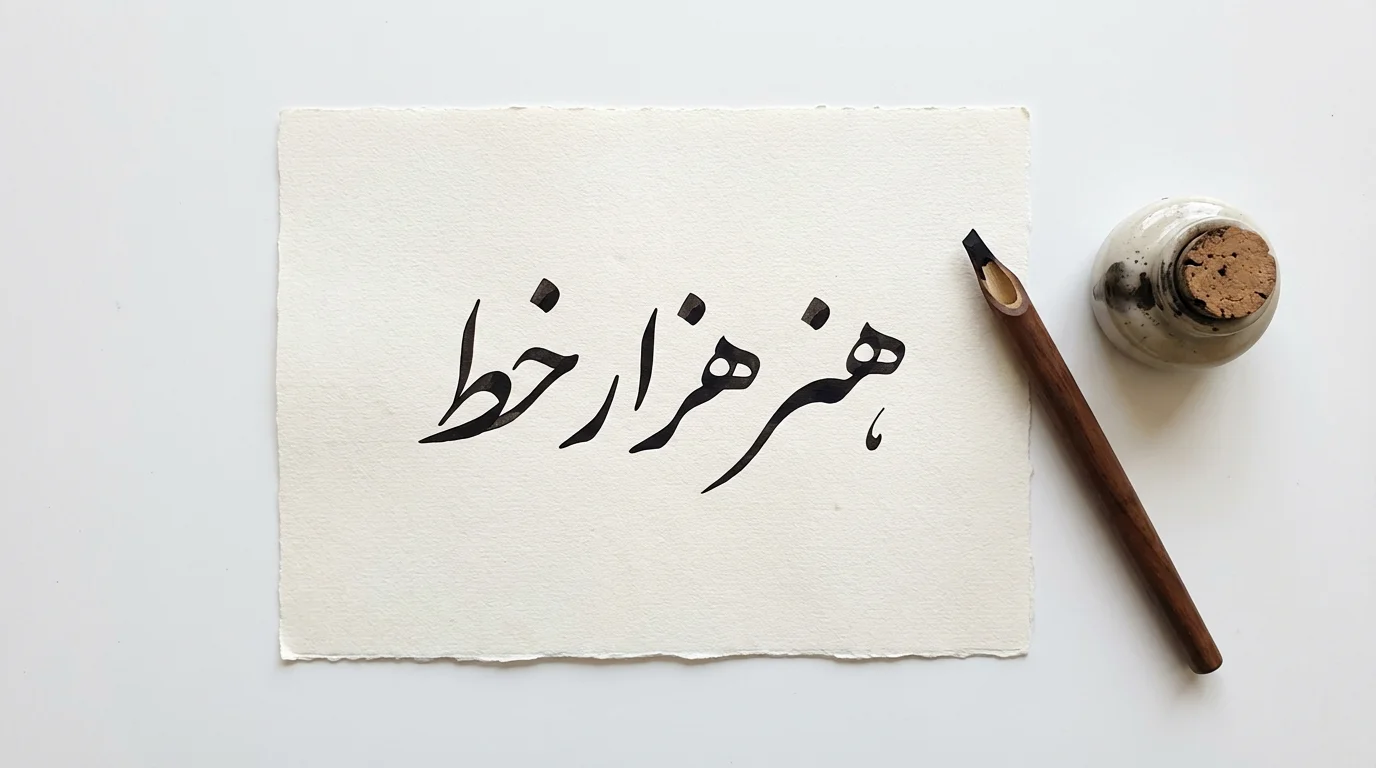 هنر هزار خط